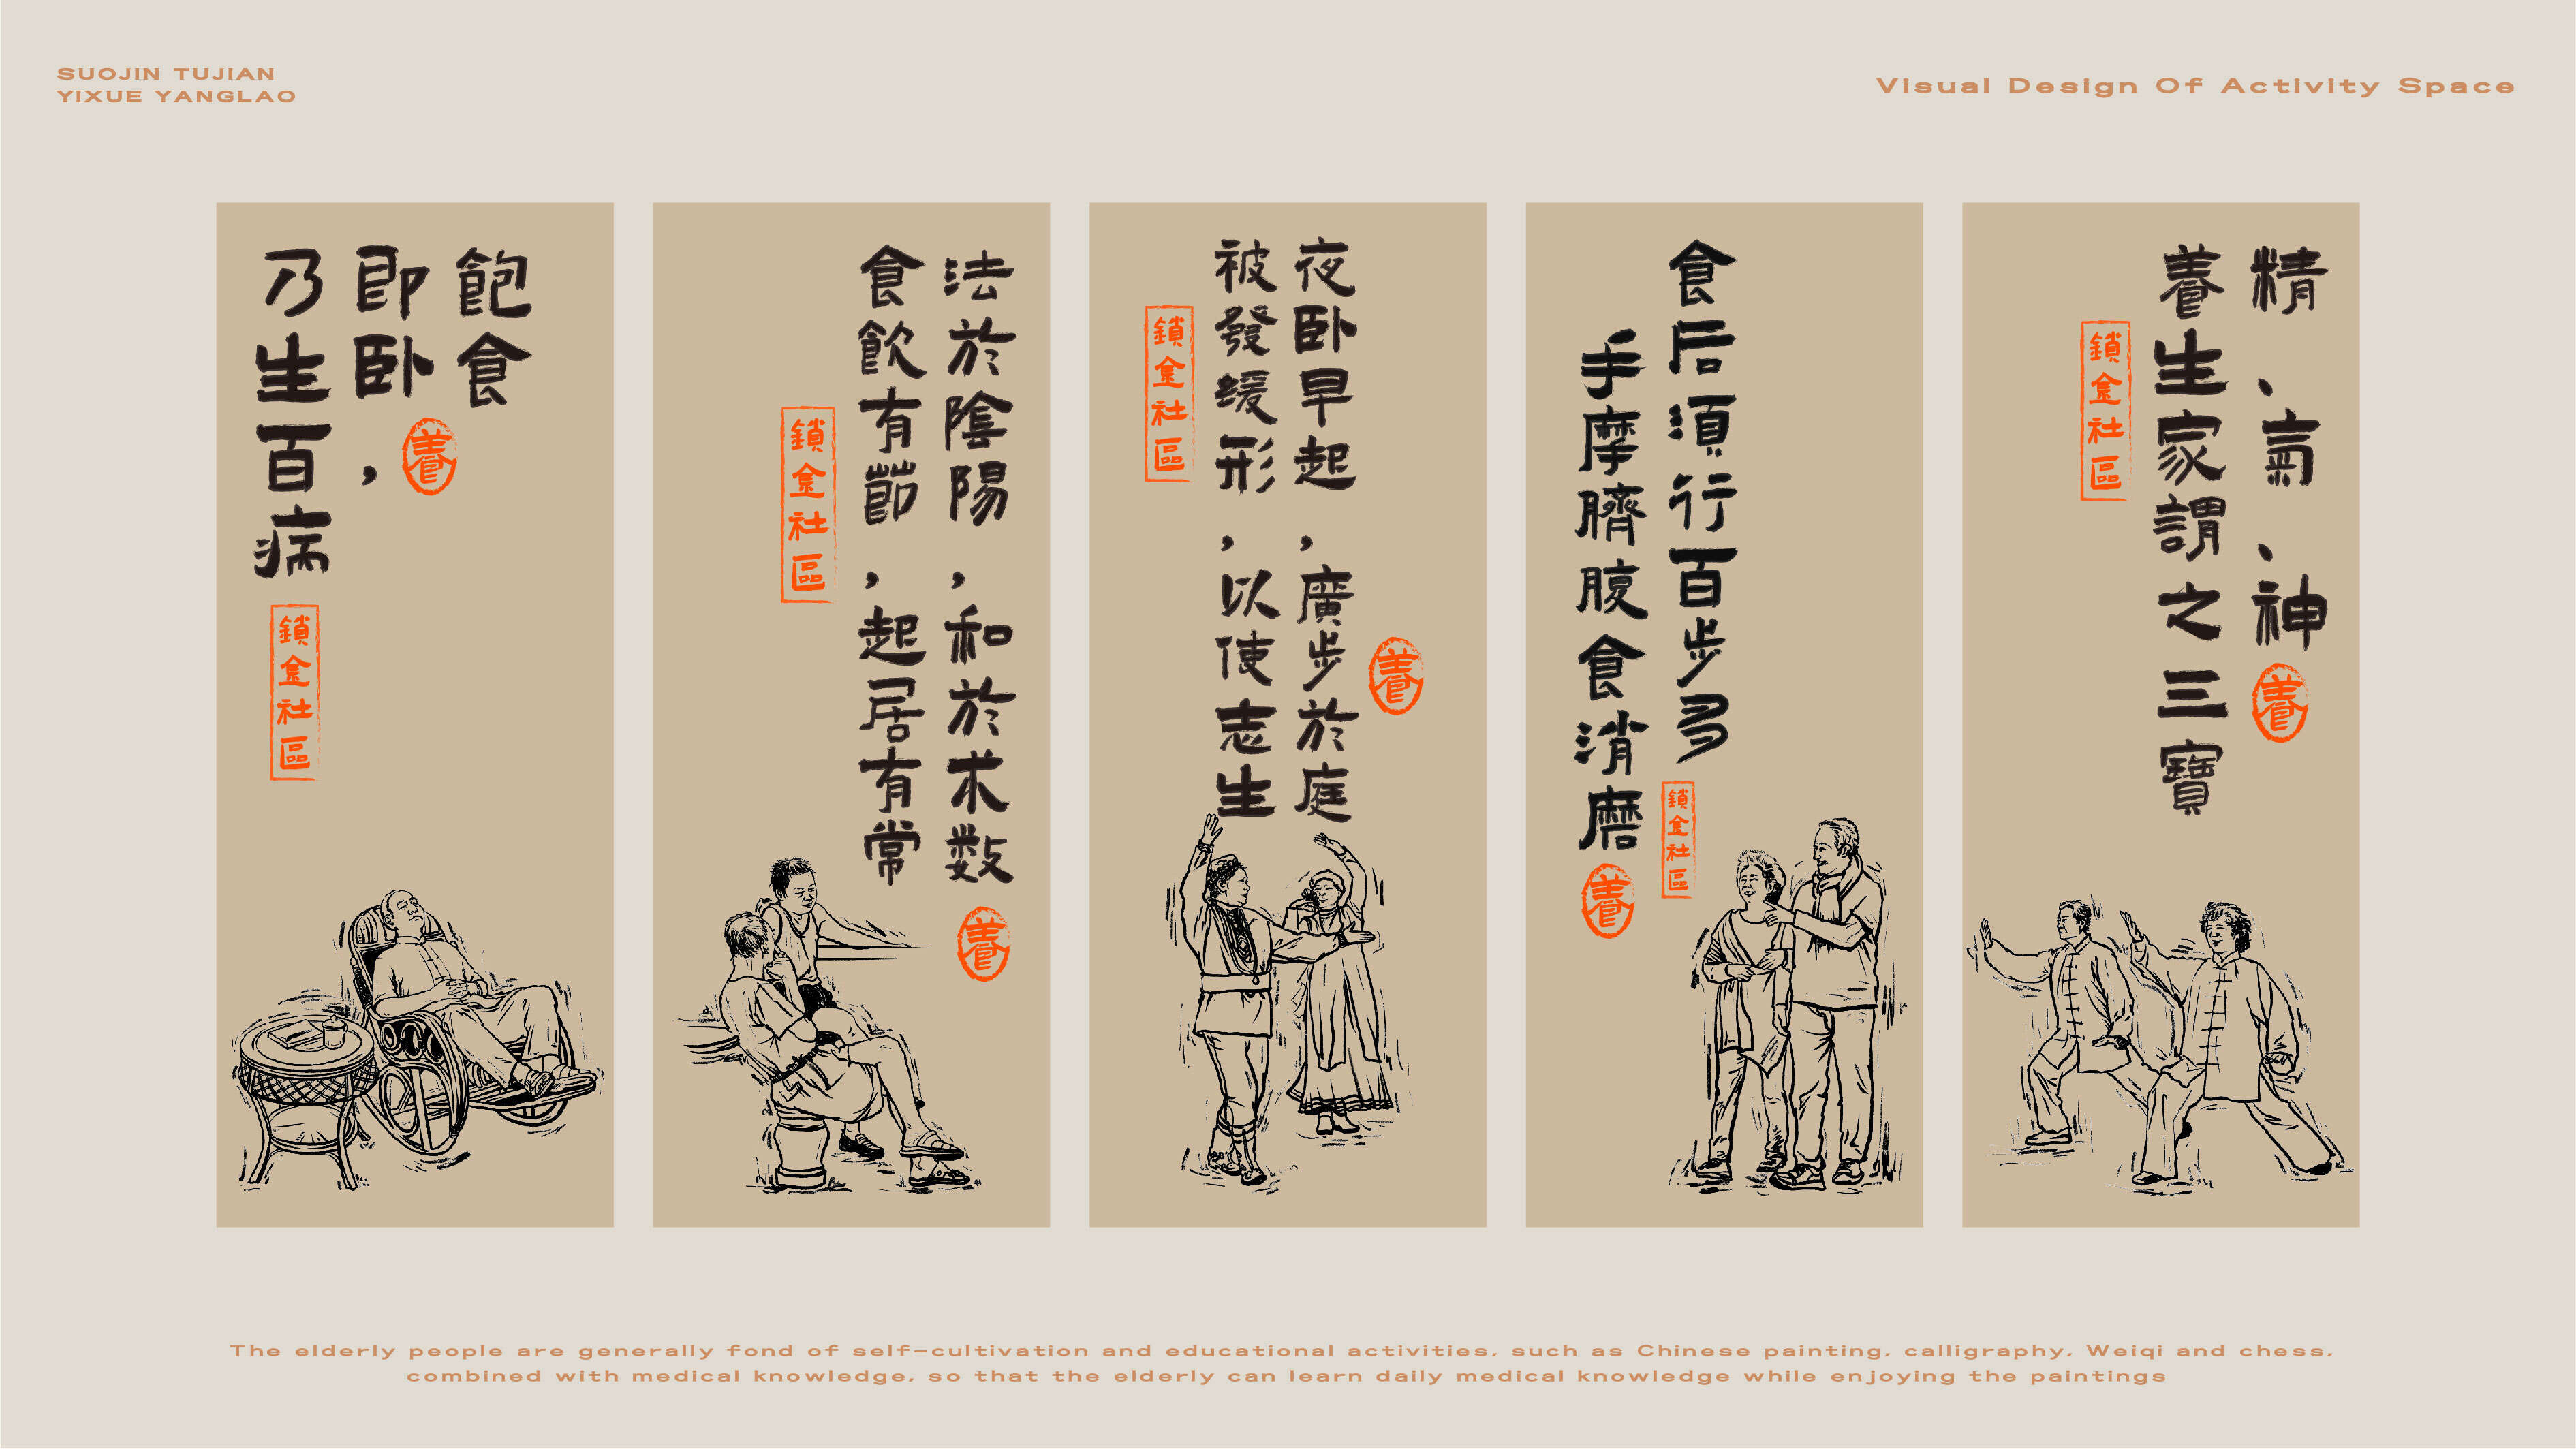 SUOJIN TUJIAN
YIXUE YANGLAO
Visual Design Of Activity Space
飽食
即卧，
乃生百病
養
鎖金社區
法於陰陽，和於术数
食飲有節，起居有常
養
鎖金社區
夜卧早起，廣步於庭
被發缓形，以使志生
養
鎖金社區
食后須行百步多
手摩臍腹食消磨
養
鎖金社區
精、氣、神
養生家謂之三寶
養
鎖金社區
The elderly people are generally fond of self-cultivation and educational activities, such as Chinese painting, calligraphy, Weiqi and chess,
combined with medical knowledge, so that the elderly can learn daily medical knowledge while enjoying the paintings